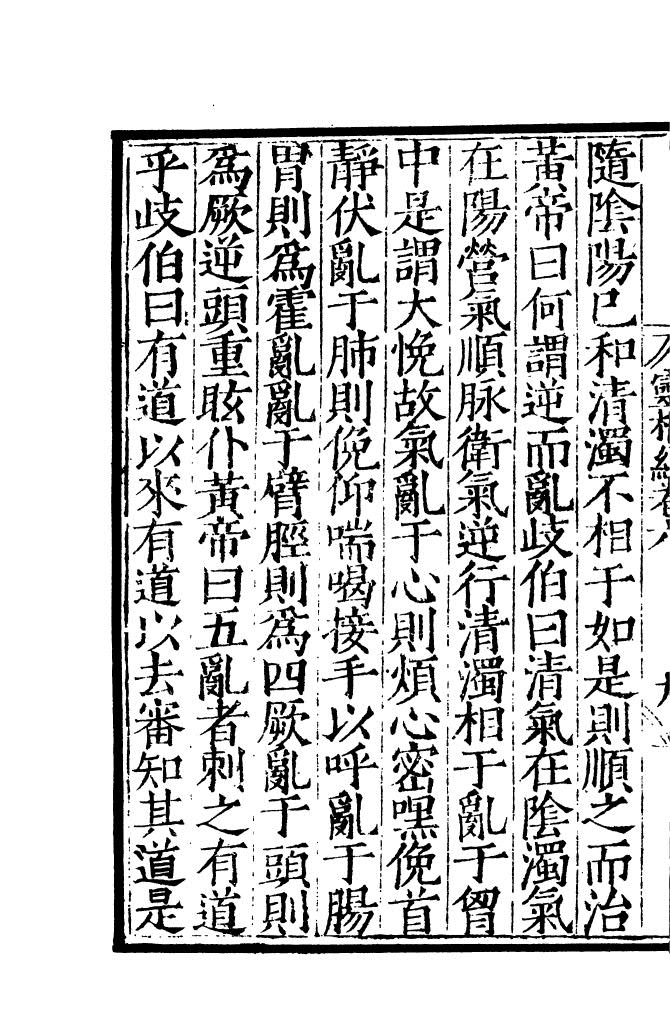 隨陰陽已和清濁不相干如是則順之而治
黃帝曰何謂逆而亂歧伯曰清氣在陰濁氣
在陽營氣順脉衛氣逆行清濁相干亂于胷
中是謂大悗故氣亂于心則煩心密嘿俛首
靜伏亂于肺則俛仰喘喝接手以呼亂于腸
胃則爲霍亂亂于臂脛則爲四厥亂于頭則
爲厥逆頭重眩仆黃帝曰五亂者刺之有道
乎歧伯曰有道以來有道以去審知其道是